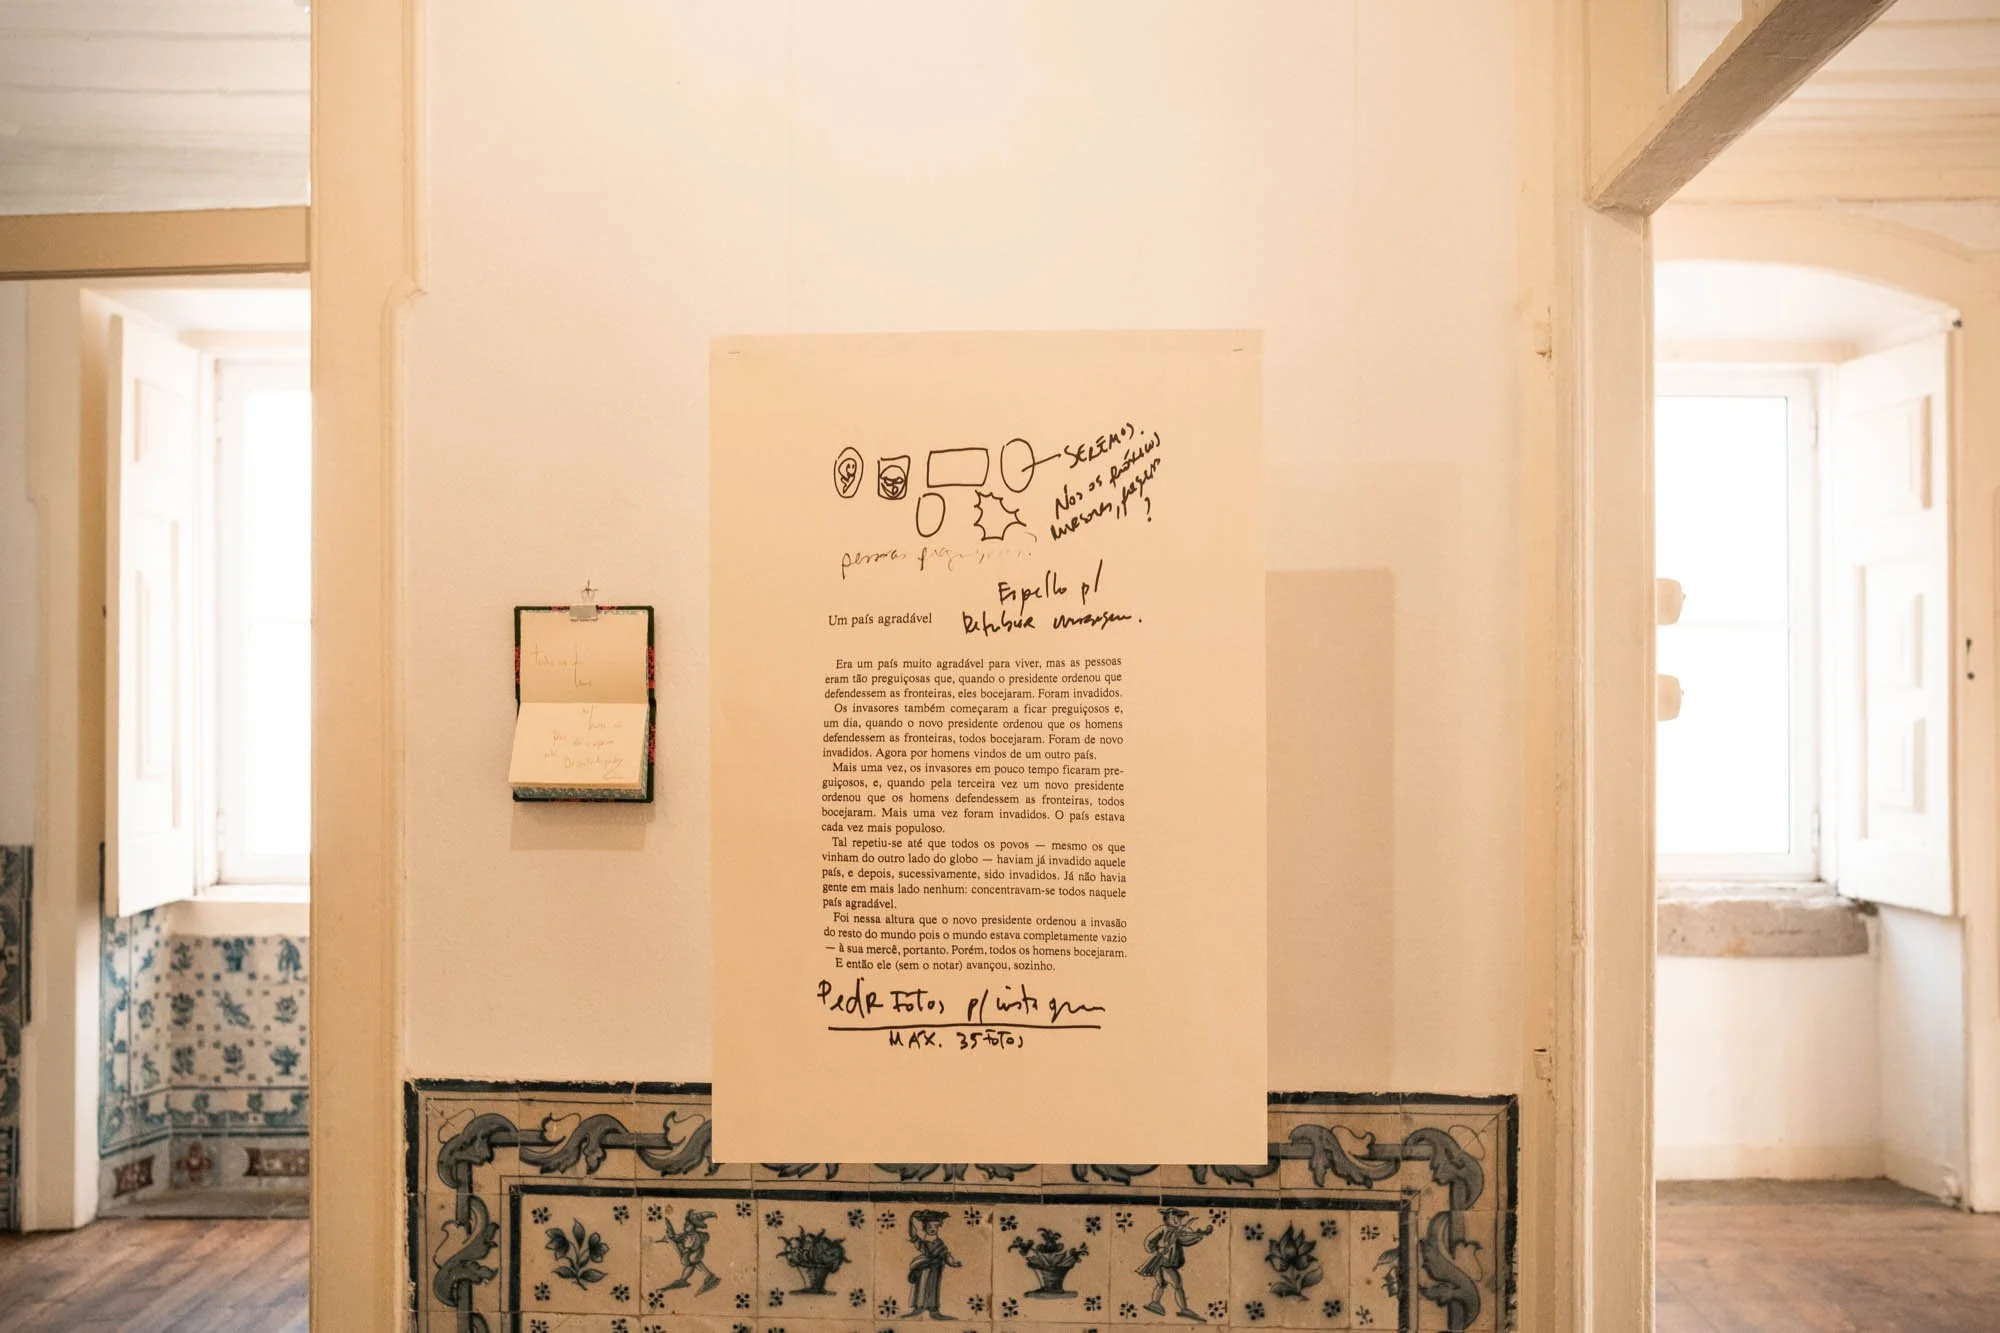 SERÊMOS.
Nós os próximos
invasores,
?
pessoas
Espelho p/
Um país agradável
Era um país muito agradável para viver, mas as pessoas
eram tão preguiçosas que, quando o presidente ordenou que
defendessem as fronteiras, eles bocejaram. Foram invadidos.
Os invasores também começaram a ficar preguiçosos e,
um dia, quando o novo presidente ordenou que os homens
defendessem as fronteiras, todos bocejaram. Foram de novo
invadidos. Agora por homens vindos de um outro país.
Mais uma vez, os invasores em pouco tempo ficaram pre-
guiçosos, e, quando pela terceira vez um novo presidente
ordenou que os homens defendessem as fronteiras, todos
bocejaram. Mais uma vez foram invadidos. O país estava
cada vez mais populoso.
Tal repetiu-se até que todos os povos — mesmo os que
vinham do outro lado do globo — haviam já invadido aquele
país, e depois, sucessivamente, sido invadidos. Já não havia
gente em mais lado nenhum: concentravam-se todos naquele
país agradável.
Foi nessa altura que o novo presidente ordenou a invasão
do resto do mundo pois o mundo estava completamente vazio
— à sua mercê, portanto. Porém, todos os homens bocejaram.
E então ele (sem o notar) avançou, sozinho.
PediR Fotos p/ instagram
MÁX. 35 FOTOS